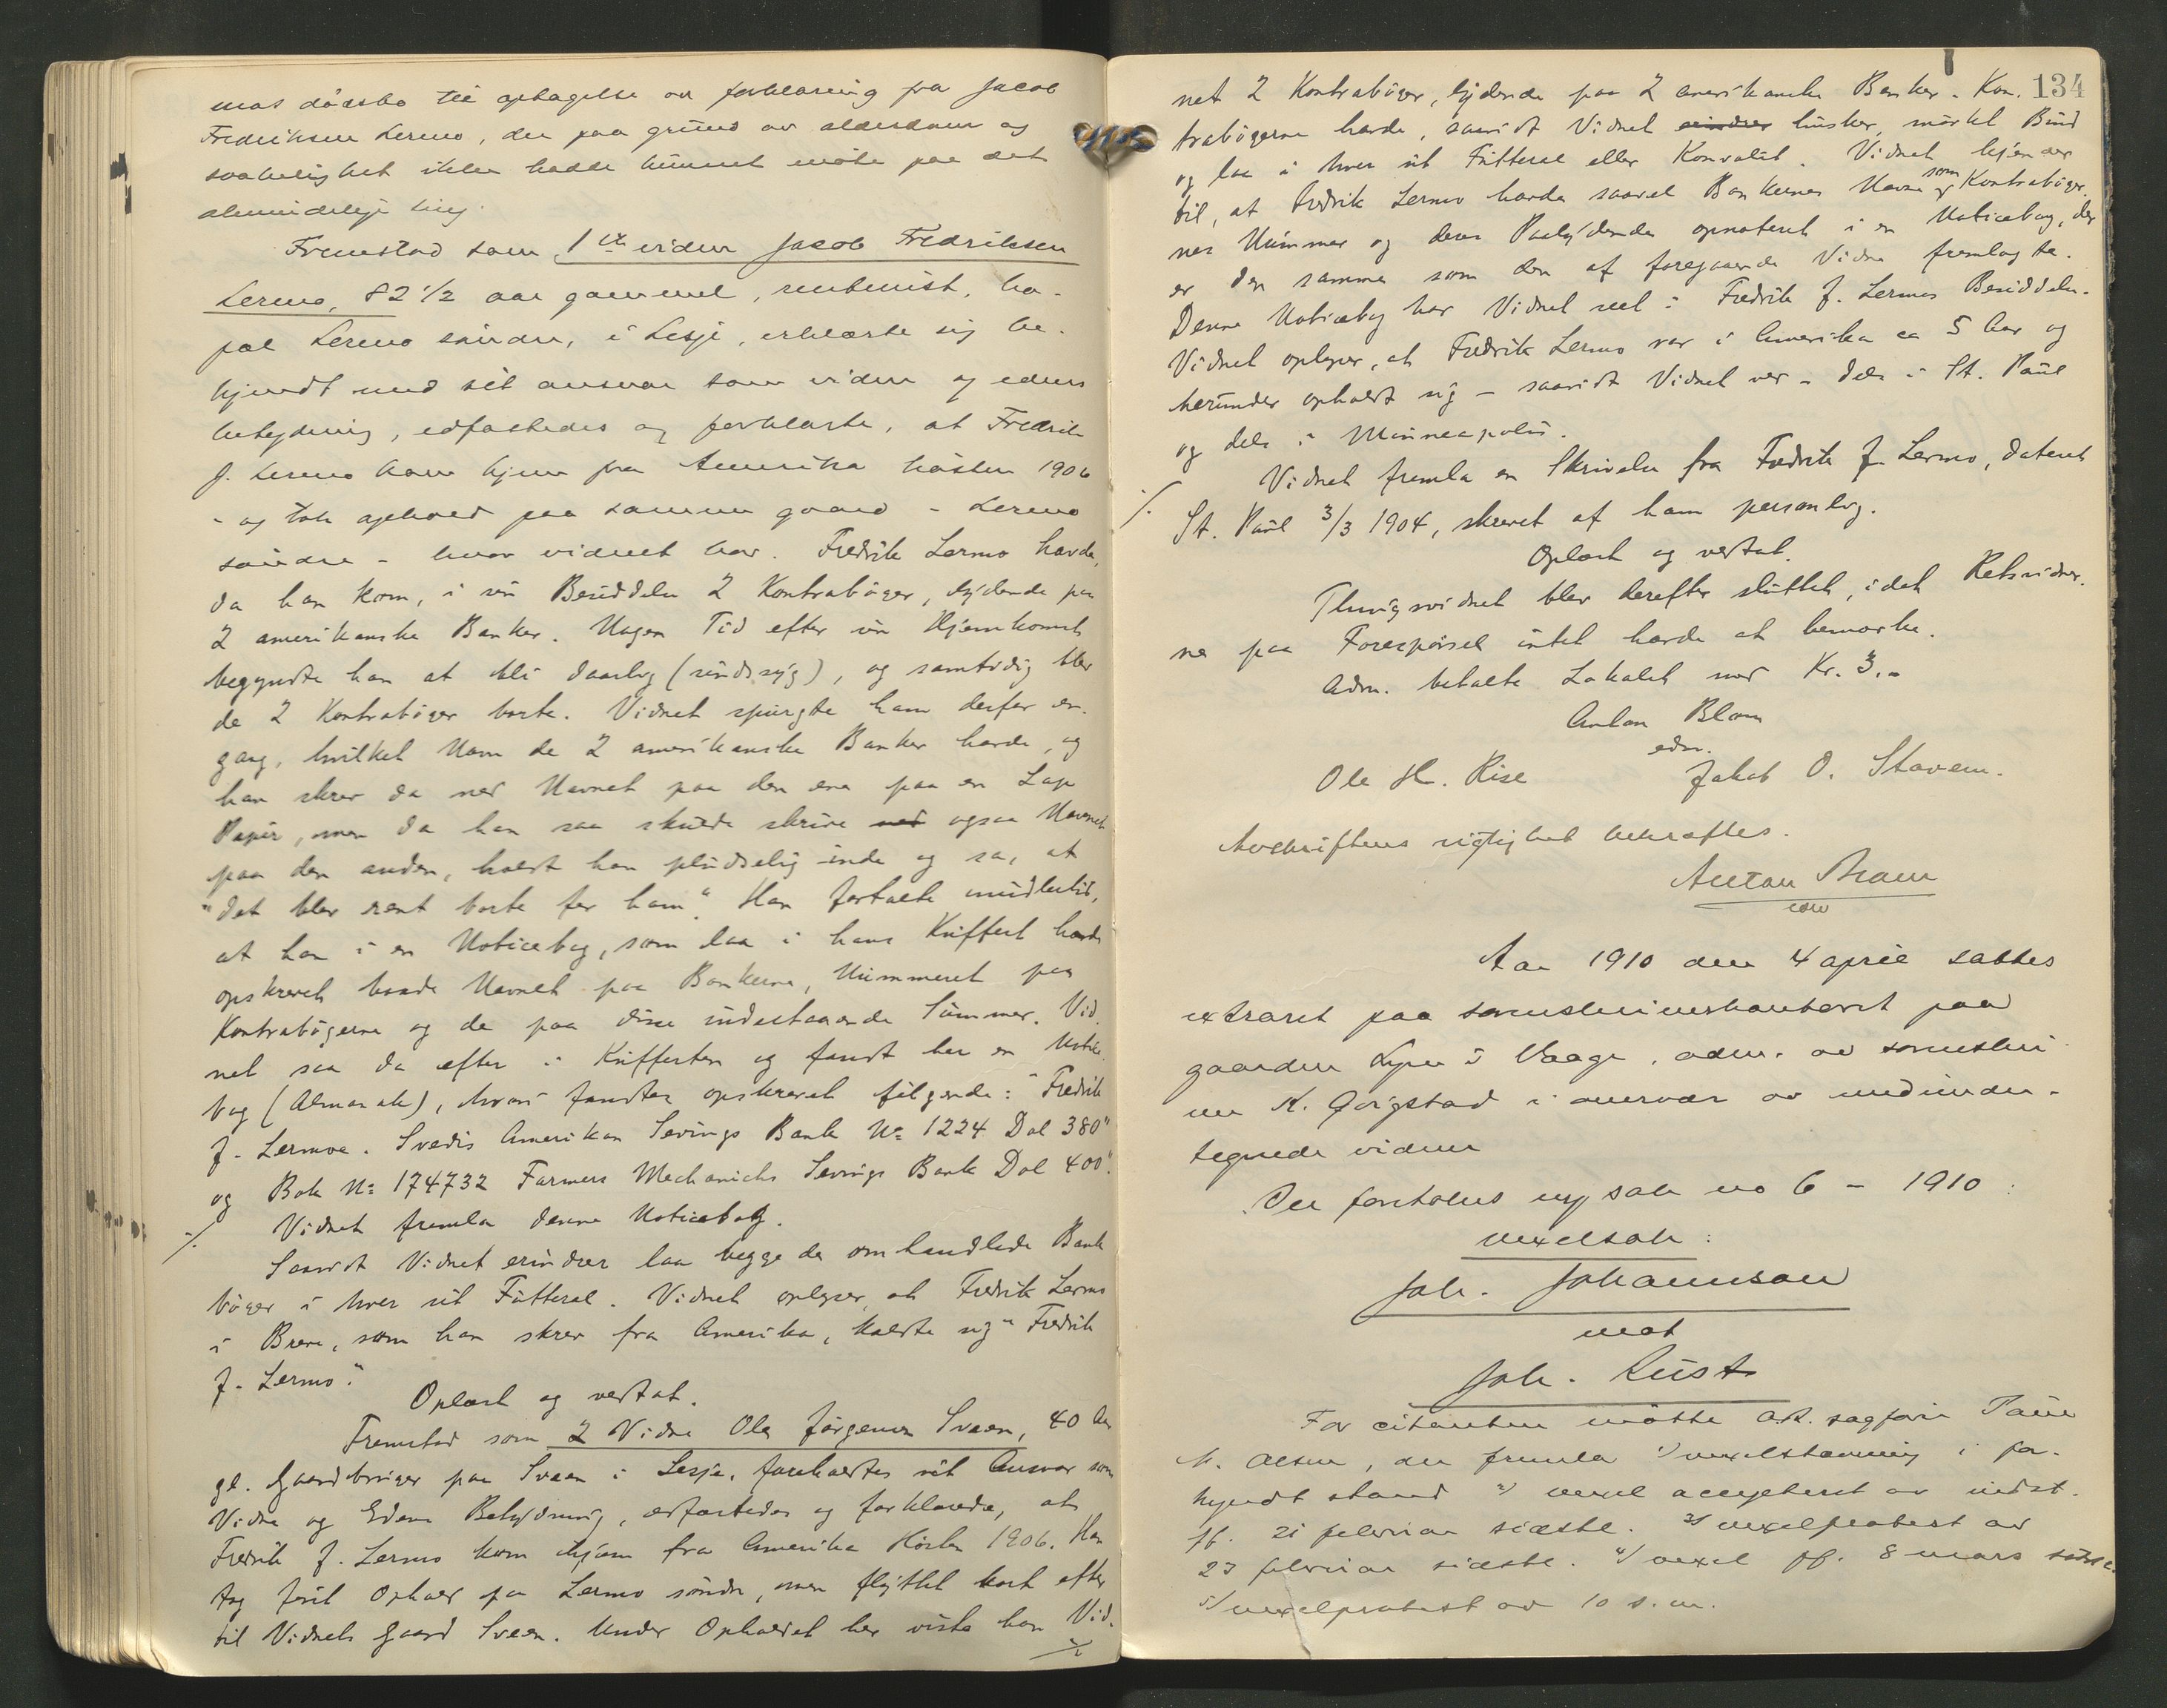 mos dødsbo til optagelse av forklaring fra Jacob
Fredriksen Lermo, der paa grund av alderdom og
svakelighet ikke hadde kunnet møte paa det
almindelige ting.
Fremstod som 1ste vidne Jacob Fredriksen
Lermo, 82 1/2 aar gammel, rentenist, bo-
pæl Lermo søndre, i Lesje, erklærte sig be-
kjendt med sit ansvar som vidne og edens
betydning, edfæstedes og forklarte, at Fredrik
J. Lermo kom hjem fra Amerika høsten 1906
- og tok ophold paa samme gaard - Lermo
søndre - hvor vidnet bor. Fredrik Lermo havde,
da han kom, i sin Besiddelse 2 Kontrabøger, lydende paa
2 amerikanske Banker. Nogen Tid efter sin Hjemkomst
begyndte han at bli daarlig (sindssyg), og samtidig blev
de 2 Kontrabøger borte. Vidnet spurgte ham derfor en-
gang, hvilket Navn de 2 amerikanske Banker havde, og
han skrev da ned Navnet paa den ene paa en Lap
Papir, men da han saa skulde skrive ned ogsaa Navnet
paa den anden, holdt han pludselig inde og sa, at
"det blev rent borte for ham". Han fortalte imidlertid,
at han i en Noticebog, som laa i hans Kuffert havde
opskrevet baade Navnet paa Bankerne, Nummeret paa
Kontrabøgerne og de paa disse indestaaende Summer. Vid-
net saa da efter i Kufferten og fandt her en Notice-
bog (Almanak), hvori fandtes opskrevet følgende: "Fredrik
J. Lermoe. Svedis Amerikan Sevings Bank No 1224 Dol 380"
og Bok No 174732 Farmers Mechanichs Sevings Bank Dol 400".
·/. Vidnet fremla denne Noticebog.
Saavidt Vidnet erindrer laa begge de omhandlede Bank
bøger i hver sit Futteral. Vidnet oplyser, at Fredrik Lermo
i Breve, som han skrev fra Amerika, kaldte sig "Fredrik
J. Lermo".
Oplæst og vedtat.
Fremstod som 2 Vidne Ole Jørgensen Sveen, 40 Aar
gl. Gaardbruger paa Sveen i Lesje, foreholdtes sit Ansvar som
Vidne og Edens Betydning, edfæstedes og forklarede, at
Fredrik J. Lermo kom hjem fra Amerika Høsten 1906. Han
tog først Ophold paa Lermo søndre, men flyttet kort efter
til Vidnets Gaard Sveen. Under Opholdet her viste han Vid-
·/.
134
net 2 Kontrabøger, lydende paa 2 amerikanske Banker. Kon-
trabøgerne havde, saavidt Vidnet erindrer husker, mørkt Bind
og laa i hver sit Futteral eller Konvolut. Vidnet kjender
til, at Fredrik Lermo havde saavel Bankernes Navne som og Kontrabøger-
nes Nummer og deres Paalydende opnoteret i en Noticebog, der
er den samme som den af foregaaende Vidne fremlagte.
Denne Noticebog har Vidnet seet i Fredrik J. Lermos Besiddelse.
Vidnet oplyser, at Fredrik Lermo var i Amerika ca 5 Aar og
herunder opholdt sig - saavidt Vidnet ved - dels i St. Paul
og dels i Minneapolis.
Vidnet fremla en Skrivelse fra Fredrik J. Lermo, dateret
·/. St. Paul 3/3 1904, skrevet af ham personlig.
Oplæst og vedtat.
Thingsvidnet blev derefter sluttet, idet Retsvidner-
ne paa Forespørsel intet havde at bemærke.
Adm. betalte Lokalet med Kr. 3.-
Anton Blom
edsv.
Ole H. Rise Jakob O. Stavem.
Avskriftens rigtighet bekræftes.
Anton Blom
edsv
Aar 1910 den 4 april sattes
extraret paa sorenskriverkontoret paa
gaarden Lyen i Vaage, adm. av sorenskri
ver K. Qvigstad i overvær av medunder-
tegnede vidner
Der foretokes ny sak no 6 - 1910:
vexelsak:
Joh. Johannson
mot
Joh. Rust
For citanten møtte o.r. sagfører Paul
M. Olsen, der fremla 1) vexelstævning i for-
kyndt stand 2) vexel accepteret av indst.
pf. 21 februar sidstl. 3) vexelprotest av
23 februar sidstl. 4) vexel pf. 8 mars sidstl.
5) vexelprotest av 10 s.m.